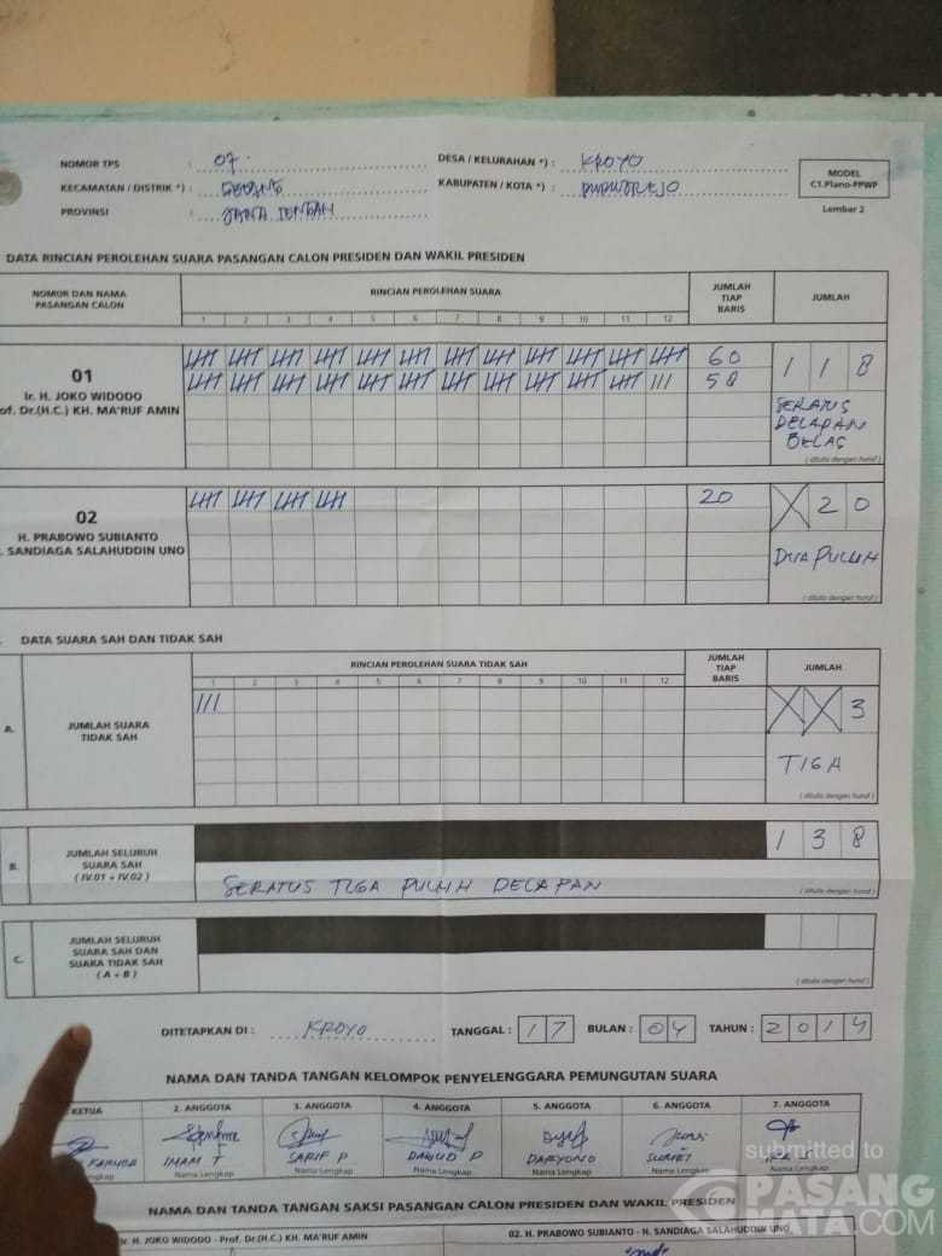 NOMOR TPS : 07 DESA / KELURAHAN *) : KROYO
KECAMATAN / DISTRIK *) : GEBANG KABUPATEN / KOTA *) : PURWOREJO
PROVINSI : JAWA TENGAH
MODEL
C1.Plano-PPWP
Lembar 2
DATA RINCIAN PEROLEHAN SUARA PASANGAN CALON PRESIDEN DAN WAKIL PRESIDEN
NOMOR DAN NAMA
PASANGAN CALON
RINCIAN PEROLEHAN SUARA
1 2 3 4 5 6 7 8 9 10 11 12
JUMLAH
TIAP
BARIS
JUMLAH
01
Ir. H. JOKO WIDODO
of. Dr.(H.C.) KH. MA'RUF AMIN
60
58
1 1 8
SERATUS
DELAPAN
BELAS
( ditulis dengan huruf )
02
H. PRABOWO SUBIANTO
. SANDIAGA SALAHUDDIN UNO
20
X 2 0
DUA PULUH
( ditulis dengan huruf )
DATA SUARA SAH DAN TIDAK SAH
RINCIAN PEROLEHAN SUARA TIDAK SAH
1 2 3 4 5 6 7 8 9 10 11 12
JUMLAH
TIAP
BARIS
JUMLAH
A.
JUMLAH SUARA
TIDAK SAH
III
X X 3
TIGA
( ditulis dengan huruf )
B.
JUMLAH SELURUH
SUARA SAH
( IV.01 + IV.02 )
1 3 8
SERATUS TIGA PULUH DELAPAN
( ditulis dengan huruf )
C.
JUMLAH SELURUH
SUARA SAH DAN
SUARA TIDAK SAH
( A + B )
( ditulis dengan huruf )
DITETAPKAN DI : KROYO TANGGAL : 17 BULAN : 04 TAHUN : 2019
NAMA DAN TANDA TANGAN KELOMPOK PENYELENGGARA PEMUNGUTAN SUARA
KETUA 2. ANGGOTA 3. ANGGOTA 4. ANGGOTA 5. ANGGOTA 6. ANGGOTA 7. ANGGOTA
IMAM T SARIF P DAWUD P DARYONO
Nama Lengkap Nama Lengkap Nama Lengkap Nama Lengkap Nama Lengkap
NAMA DAN TANDA TANGAN SAKSI PASANGAN CALON PRESIDEN DAN WAKIL PRESIDEN
Ir. H. JOKO WIDODO - Prof. Dr.(H.C.) KH. MA'RUF AMIN
02. H. PRABOWO SUBIANTO - H. SANDIAGA SALAHUDDIN UNO
submitted to
PASANG
MATA.COM